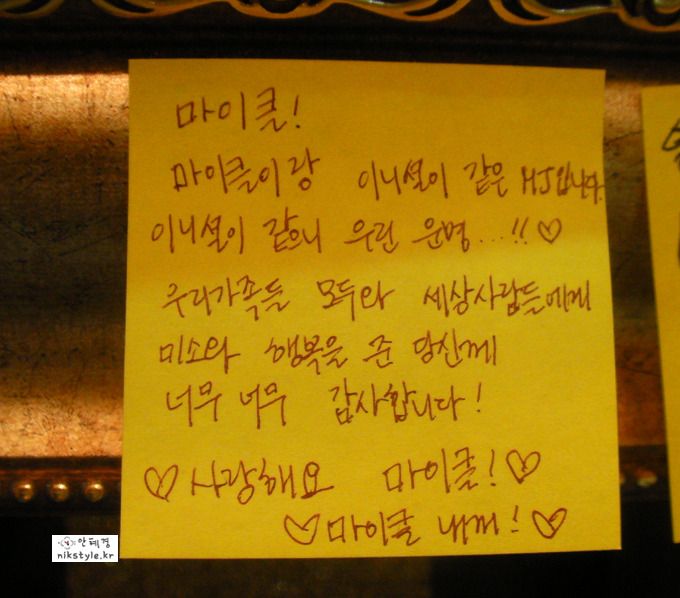 마이클!
마이클이랑 이니셜이 같은 MJ입니다.
이니셜이 같으니 우린 운명...!! ♡
우리가족들 모두와 세상사람들에게
미소와 행복을 준 당신께
너무 너무 감사합니다!
♡ 사랑해요 마이클! ♡
♡ 마이클 내꺼! ♡
안혜경
nikstyle.kr